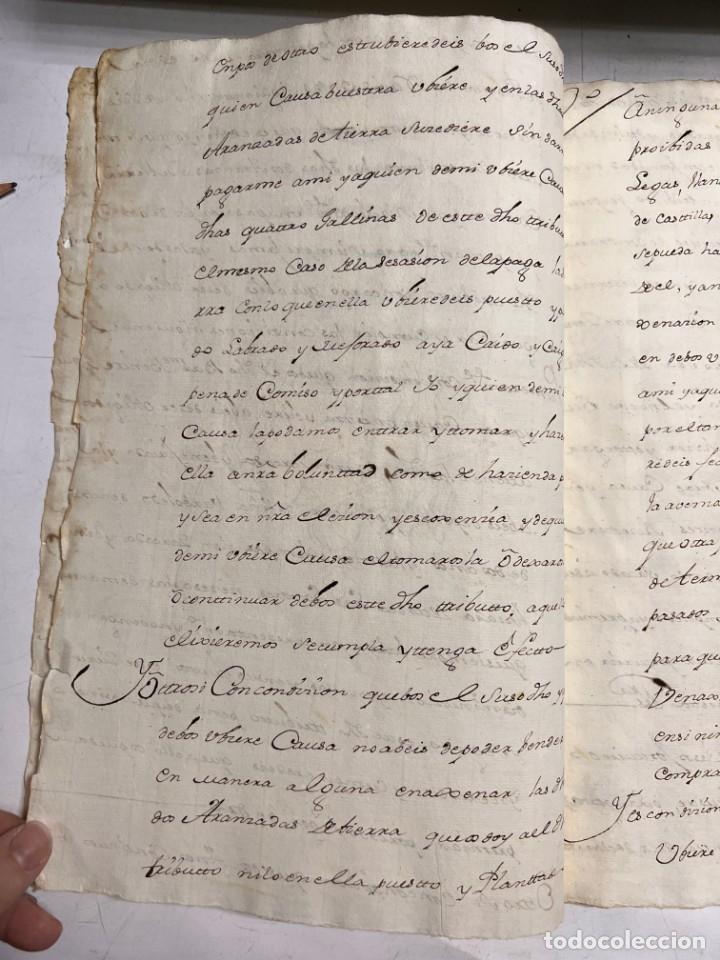 en pos de otro estubieredeis bos el suso d
quien Causa buestra ubiere y en las dha
Aranzadas de tierra suzediere sin dar
pagarme a mi y a quien de mi ubiere Cau
dhas quattro Gallinas de estte dho ttribu
el mesmo Caso de la sesasion de la paga la
rra con lo que en ella ubieredeis puestto y
do Labrado y mejorado aya Caido y Caig
pena de Comiso y por ttal yo y quien de mi
Causa la podamos enttrar y ttomar y haz
ella a nra bolunttad como de hazienda p
y sea en nra elezion y escoxenzia y de qu
de mi ubiere Causa el tomaros la o dexaro
o conttinuar debos estte dho ttributto, a quel
elixieremos se cumpla y ttenga efectto
Yottrosi Con condizion que bos el suso dho y
de bos ubiere Causa no abeis de poder bender
en manera alguna enaxenar las d
dos Aranzadas de tierra que os doy a el d
tributto ni lo en ella puestto y Planttad
Aninguna
proibidas
Legas, llan
de Casttillas
se pueda ha
del, y an
denazion
en de bos u
a mi y a qu
por el ton
redeis
la a vema
que otra
de term
pasados
para qu
benax
en si nin
Compra
Y es con dizion
Ubiere
todocoleccion
todocoleccion.net